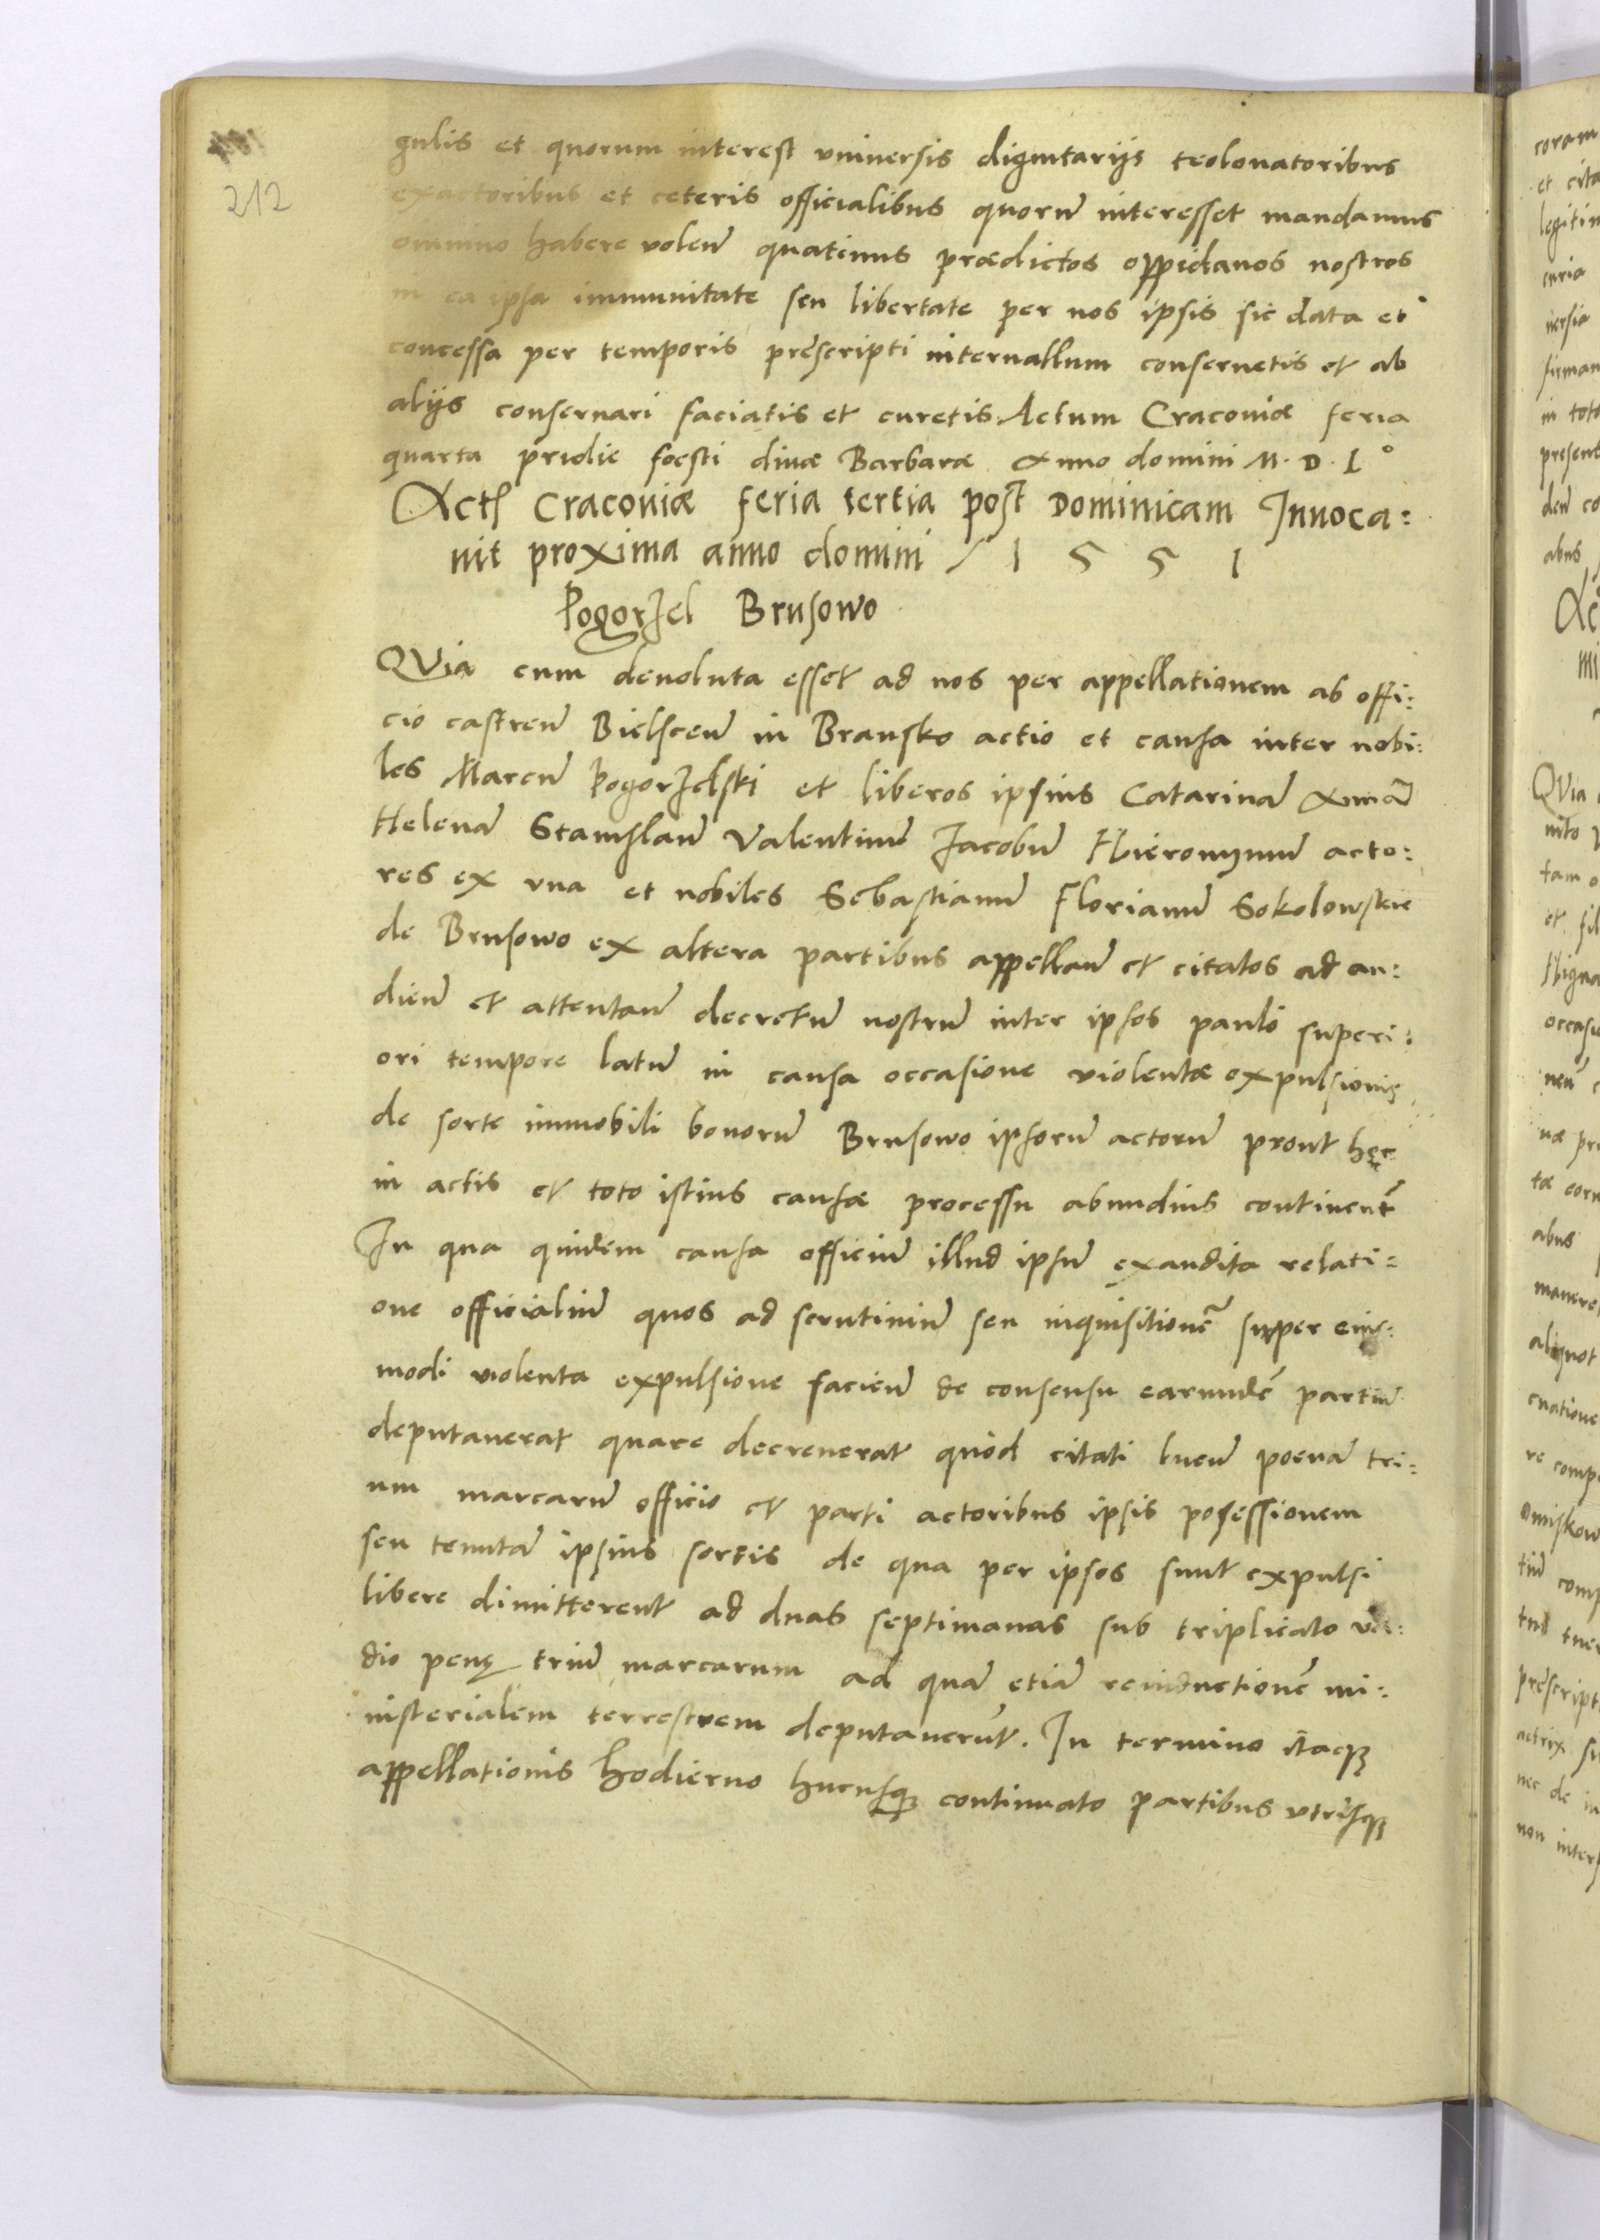 212
gulis et quorum interest vniuersis dignitarijs teolonatoribus
exactoribus et ceteris officialibus quorū interesset mandamus
omnino habere volen̄ quatinus prædictos oppidanos nostros
in ea ipsa immunitate seu libertate per nos ipsis sic data et
concessa per temporis præscripti interuallum conseruetis et ab
alijs conseruari faciatis et curetis Actum Cracouiæ feria
quarta pridie foesti diuæ Barbaræ Anno domini M. D. L°
Act̄ Cracouiæ feria tertia post Dominicam Inuoca:
uit proxima anno domini / 1 5 5 1
Pogorzel Brusowo
QVia cum deuoluta esset ad nos per appellationem ab offi:
cio castren̄ Bielscen̄ in Bransko actio et causa inter nobi:
les Marcū Pogorzelski et liberos ipsius Catarinā Annā
Helenā Stanislaū Valentinū Jacobū Hieronymū acto:
res ex vna et nobiles Sebastianū Florianū Sokolowskie
de Brusowo ex altera partibus appellan̄ et citatos ad au:
dien̄ et attentan̄ decretū nostrū inter ipsos paulo superi:
ori tempore latū in causa occasione violentæ expulsionis
de sorte immobili bonorū Brusowo ipsorū actorū prout hęc
in actis et toto istius causæ processu abundius continent̄
In qua quidem causa officiū illud ipsū exaudita relati:
one officialiū quos ad scrutiniū seu inquisitionē super eius:
modi violenta expulsione facien̄ de consensu earundē partiū
deputauerat quare decreuerat quod citati luen̄ poenā tri:
um marcarū officio et parti actoribus ipsis possessionem
seu tenutā ipsius sortis de qua per ipsos sunt expulsi
libere dimitterent ad duas septimanas sub triplicato va:
dio penę triū marcarum ad quā etiā reinductionē mi:
nisterialem terrestrem deputauerūt. In termino itaqȝ
appellationis hodierno hucusqȝ continuato partibus vtrisqȝ